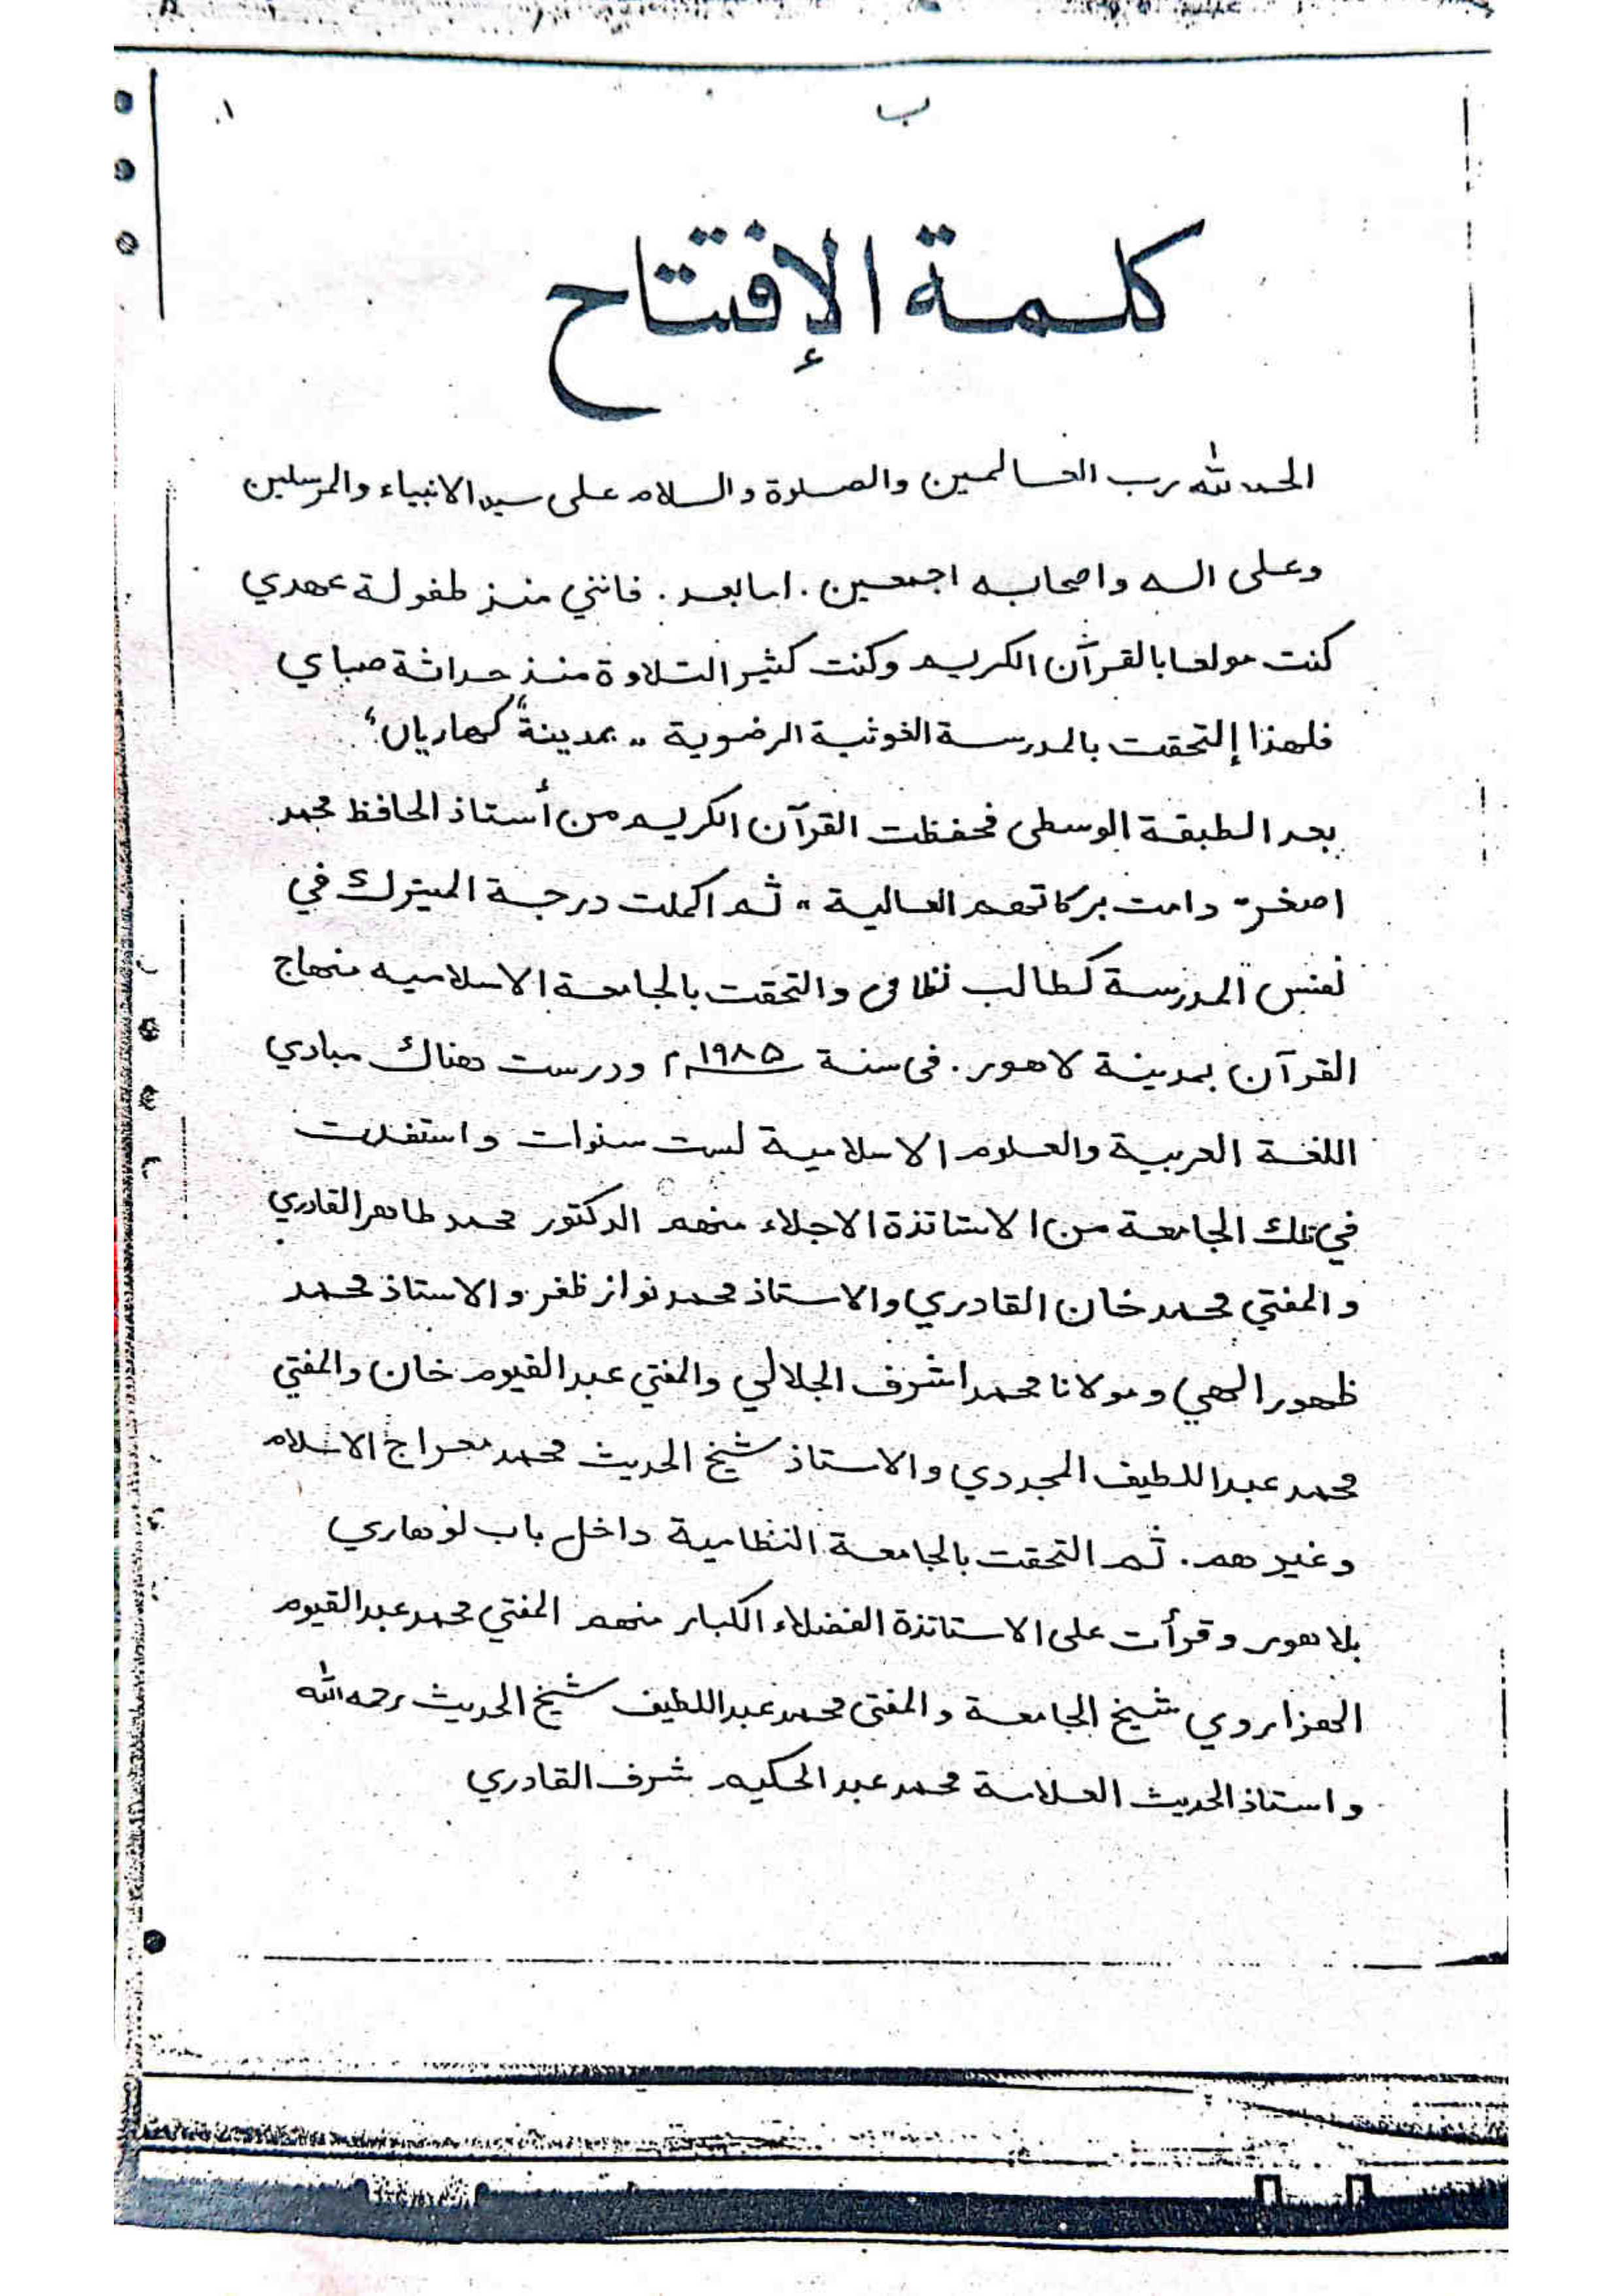 ب
كلمة الإفتتاح
الحمد لله رب العالمين والصلوة والسلام على سيد الانبياء والمرسلين
وعلى اله واصحابه اجمعين. اما بعد. فانني منذ طفولة عهدي
كنت مولعا بالقرآن الكريم وكنت كثير التلاوة منذ حداثة صباي
فلهذا إلتحقت بالمدرسة الغوثية الرضوية ,, بمدينة "كهاريان"
بعد الطبقة الوسطى فحفظت القرآن الكريم من أستاذ الحافظ محمد
اصغر" دامت بركاتهم العالية ,, ثم اكملت درجة الميترك في
نفس المدرسة كطالب نظامى والتحقت بالجامعة الاسلاميه منهاج
القرآن بمدينة لاهور. فى سنة ١٩٨٥م ودرست هناك مبادي
اللغة العربية والعلوم الاسلامية لست سنوات واستفدت
في تلك الجامعة من الاساتذة الاجلاء منهم الدكتور محمد طاهر القادري
والمفتي محمد خان القادري والاستاذ محمد نواز ظفر والاستاذ محمد
ظهور الهي ومولانا محمد اشرف الجلالي والمفتي عبد القيوم خان والمفتي
محمد عبد اللطيف المجددي والاستاذ شيخ الحديث محمد معراج الاسلام
وغيرهم. ثم التحقت بالجامعة النظامية داخل باب لوهاري
بلاهور وقرأت على الاساتذة الفضلاء الكبار منهم المفتي محمد عبد القيوم
الهزاروي شيخ الجامعة والمفتى محمد عبد اللطيف شيخ الحديث رحمه الله
واستاذ الحديث العلامة محمد عبد الحكيم شرف القادري